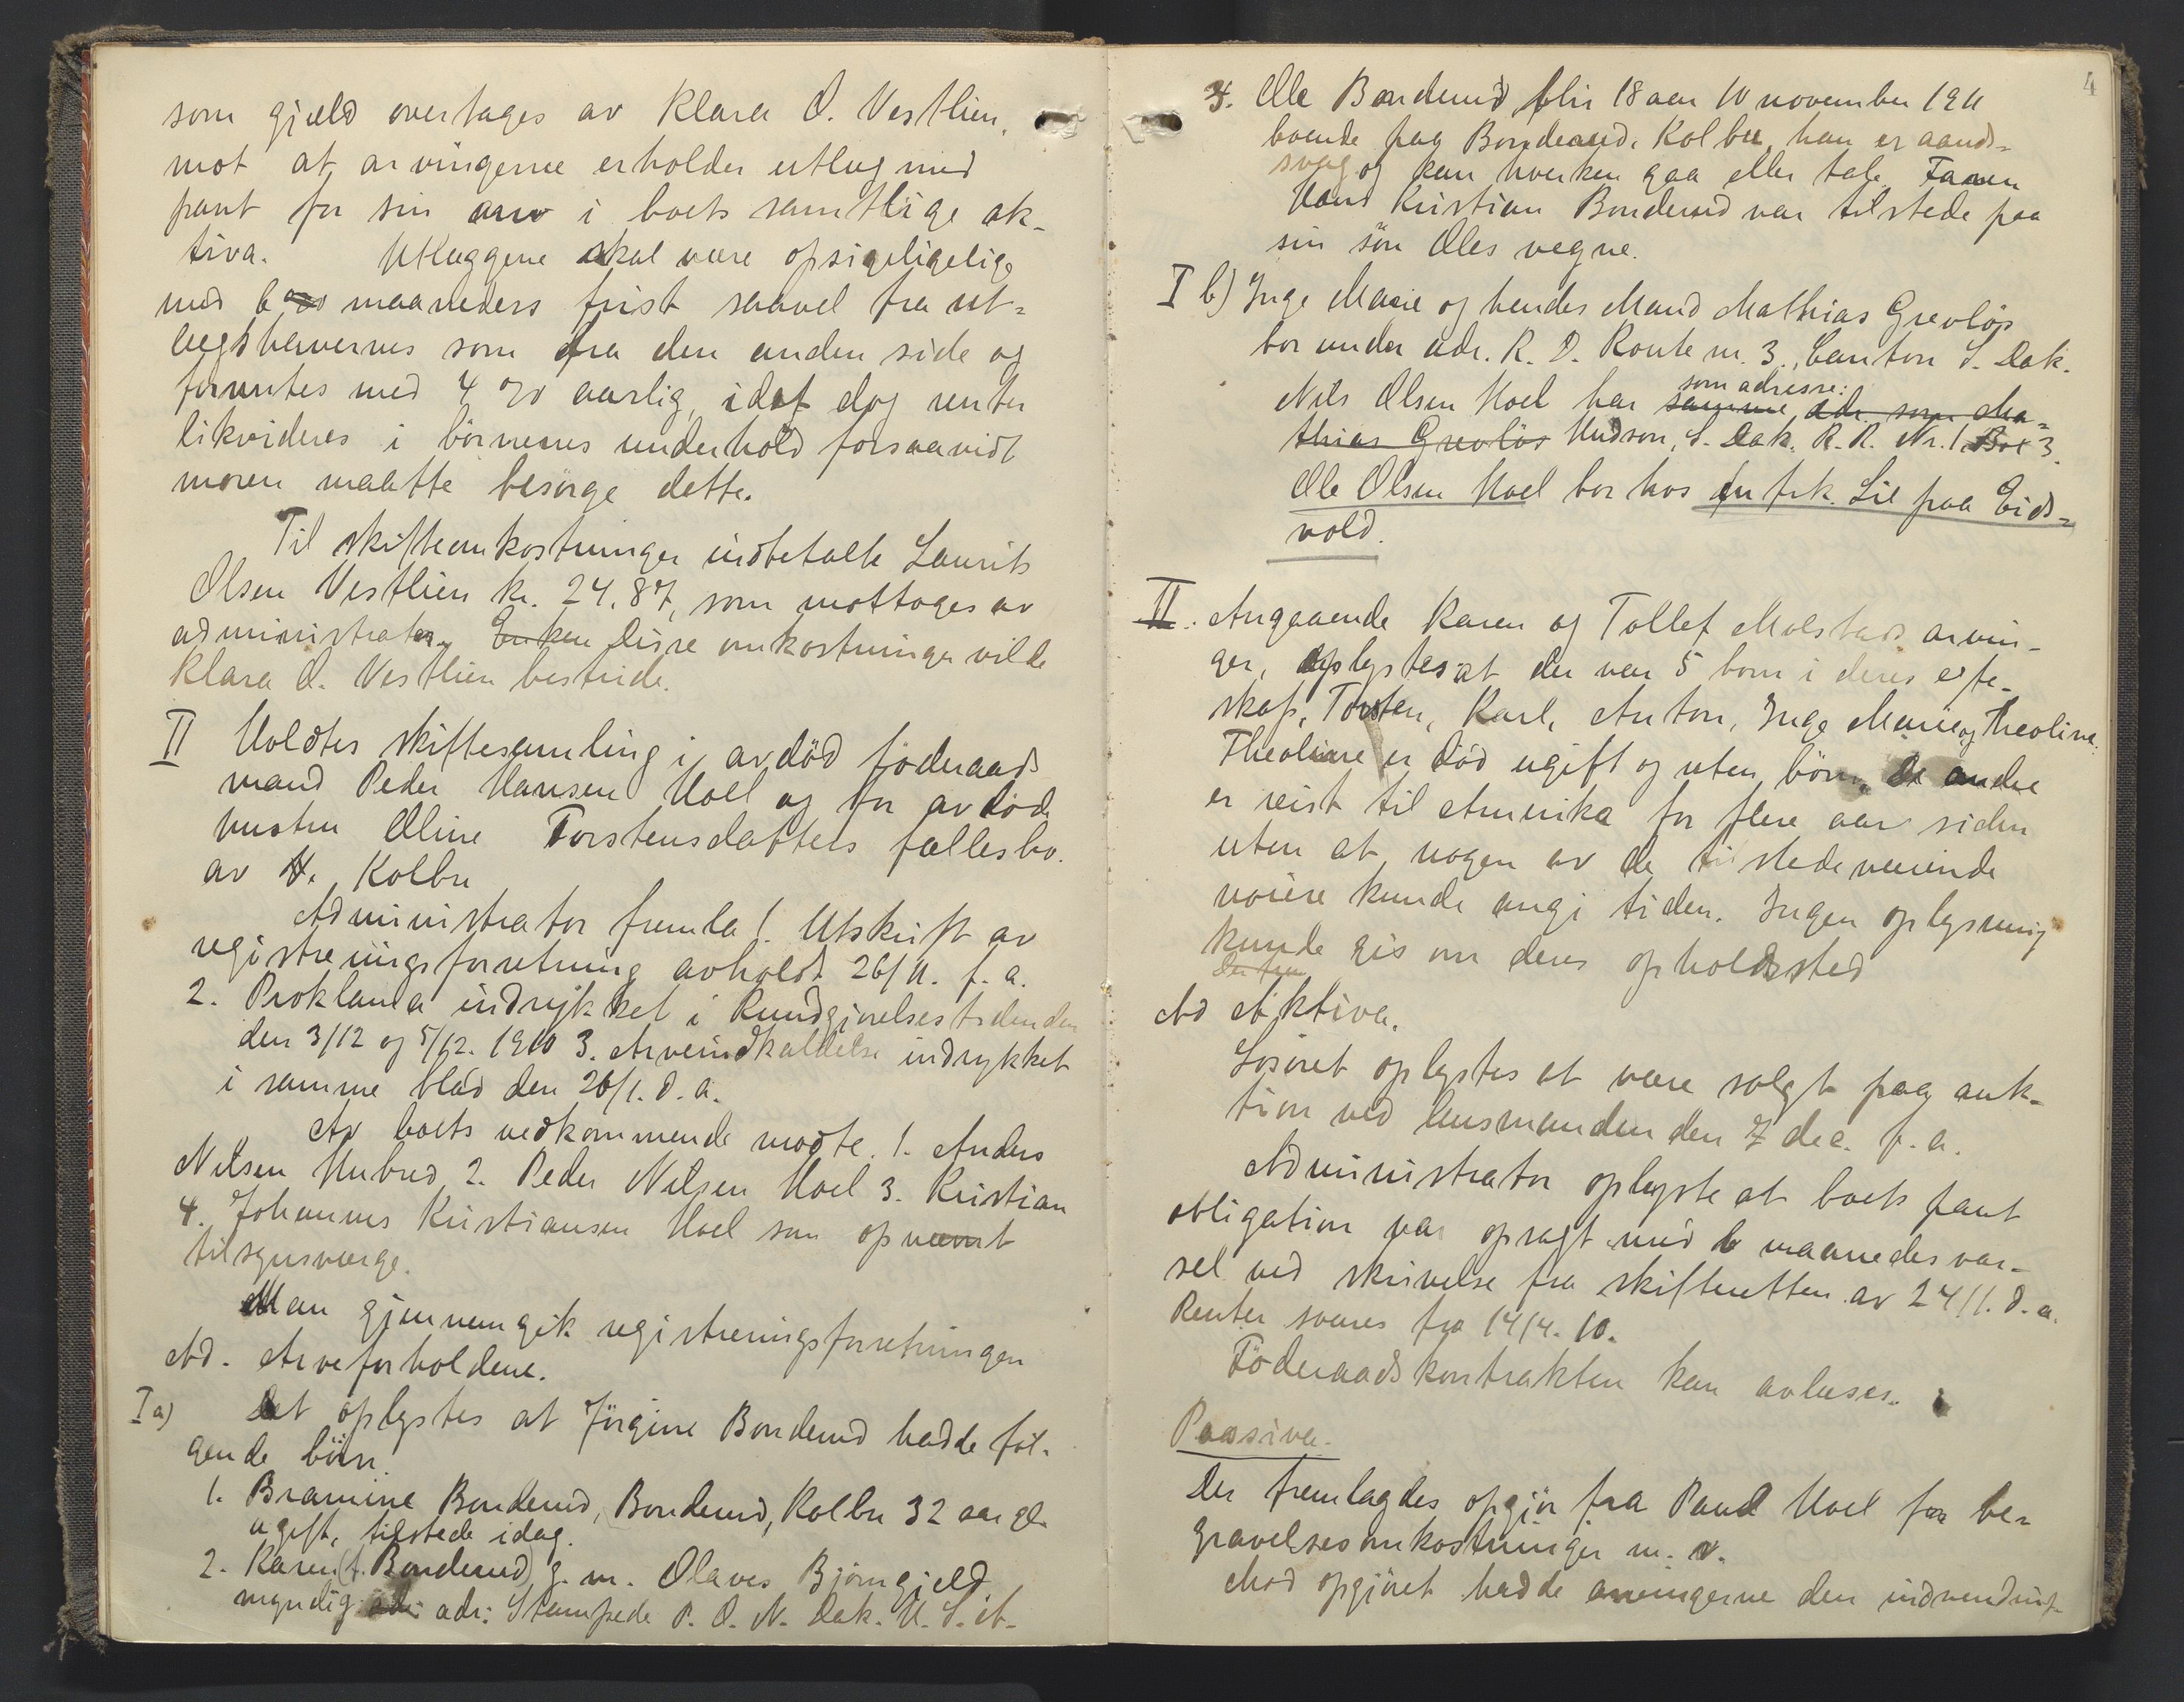 som gjæld overtages av Klara O. Vestlien,
mot at arvingerne erholder utlæg med
pant for sin arv i boets samtlige ak-
tiva. Utlæggene skal være opsigeligelige
med 6 maaneders frist saavel fra ut-
lægshavernes som fra den anden side og
forrentes med 4 % aarlig, idet dog renter
likvideres i börnenes underhold forsaavidt
moren maatte besörge dette.
Til skifteomkostninger indbetalte Laurits
Olsen Vestlien kr. 24.87, som mottoges av
administrator. Enken Disse omkostninger vilde
Klara O. Vestlien bestride.
II Holdtes skiftesamling i avdöd föderaads
mand Peder Hansen Hoel og for avdöde
hustru Oline Torstensdatters fællesbo.
av V. Kolbu
Administrator fremla 1. Utskrift av
registreringsforretning avholdt 26/11. f. a.
2. Proklama indrykket i Kundgjörelsestidenden
den 3/12 og 5/12. 1910 3. Arveindkaldelse indrykket
i samme blad den 26/1. d. a.
Av boets vedkommende mödte. 1. Anders
Nilsen Hubred 2. Peder Nilsen Hoel 3. Kristian
4. Johannes Kristiansen Hoel som opnævnt
tilsynsværge.
Man gjennemgik registreringsforretningen
Ad. Arveforholdene.
I a) Det oplystes at Jörgine Bonderud hadde föl-
gende börn.
1. Bramine Bonderud, Bonderud, Kolbu 32 aar gl.
ugift, tilstede idag.
2. Karen (f. Bonderud) g. m. Olaves Björngjeld
myndig adr: Stampede P. O. N. Dak. U. S. A.
4
3. Ole Bonderud blir 18 aar 10 november 1911
boende paa Bonderud, Kolbu, han er aands-
svag og kan hverken gaa eller tale. Faren
Hans Kristian Bonderud var tilstede paa
sin sön Oles vegne.
I b) Inge Marie og hendes Mand Mathias Grevlös
bor under adr. R. D. Route nr. 3., Canton S. Dak.
som adresse:
Nils Olsen Hoel har samme adr som Ma-
thias Grevlös Hudson, S. Dak. R. R. Nr. 1 Box 3.
Ole Olsen Hoel bor hos en frk. Lie paa Eids-
vold.
II. Angaaende Karen og Tollef Molstads arvin-
ger, oplystes at der var 5 barn i deres egte-
skap, Torsten, Karl, Anton, Inge Marie og Theoline.
Theoline er död ugift og uten börn. De andre
er reist til Amerika for flere aar siden
uten at nogen av de tilstedeværende
nöiere kunde angi tiden. Ingen oplysning
kunde gis om deres opholdssted
Ad Aktiva.
Lösöret oplystes at være solgt paa auk-
tion ved lensmanden den 7 dec. f. a.
Administrator oplyste at boets pant
obligation var opsagt med 6 maaneders var-
sel ved skrivelse fra skifteretten av 24/1. d. a.
Renter svares fra 14/4. 10.
Föderaadskontrakten kan avlæses.
Passiva.
Der fremlagdes opgjör fra Paul Hoel for be-
gravelsesomkostninger m. v.
Mod opgjöret hadde arvingerne den indvending